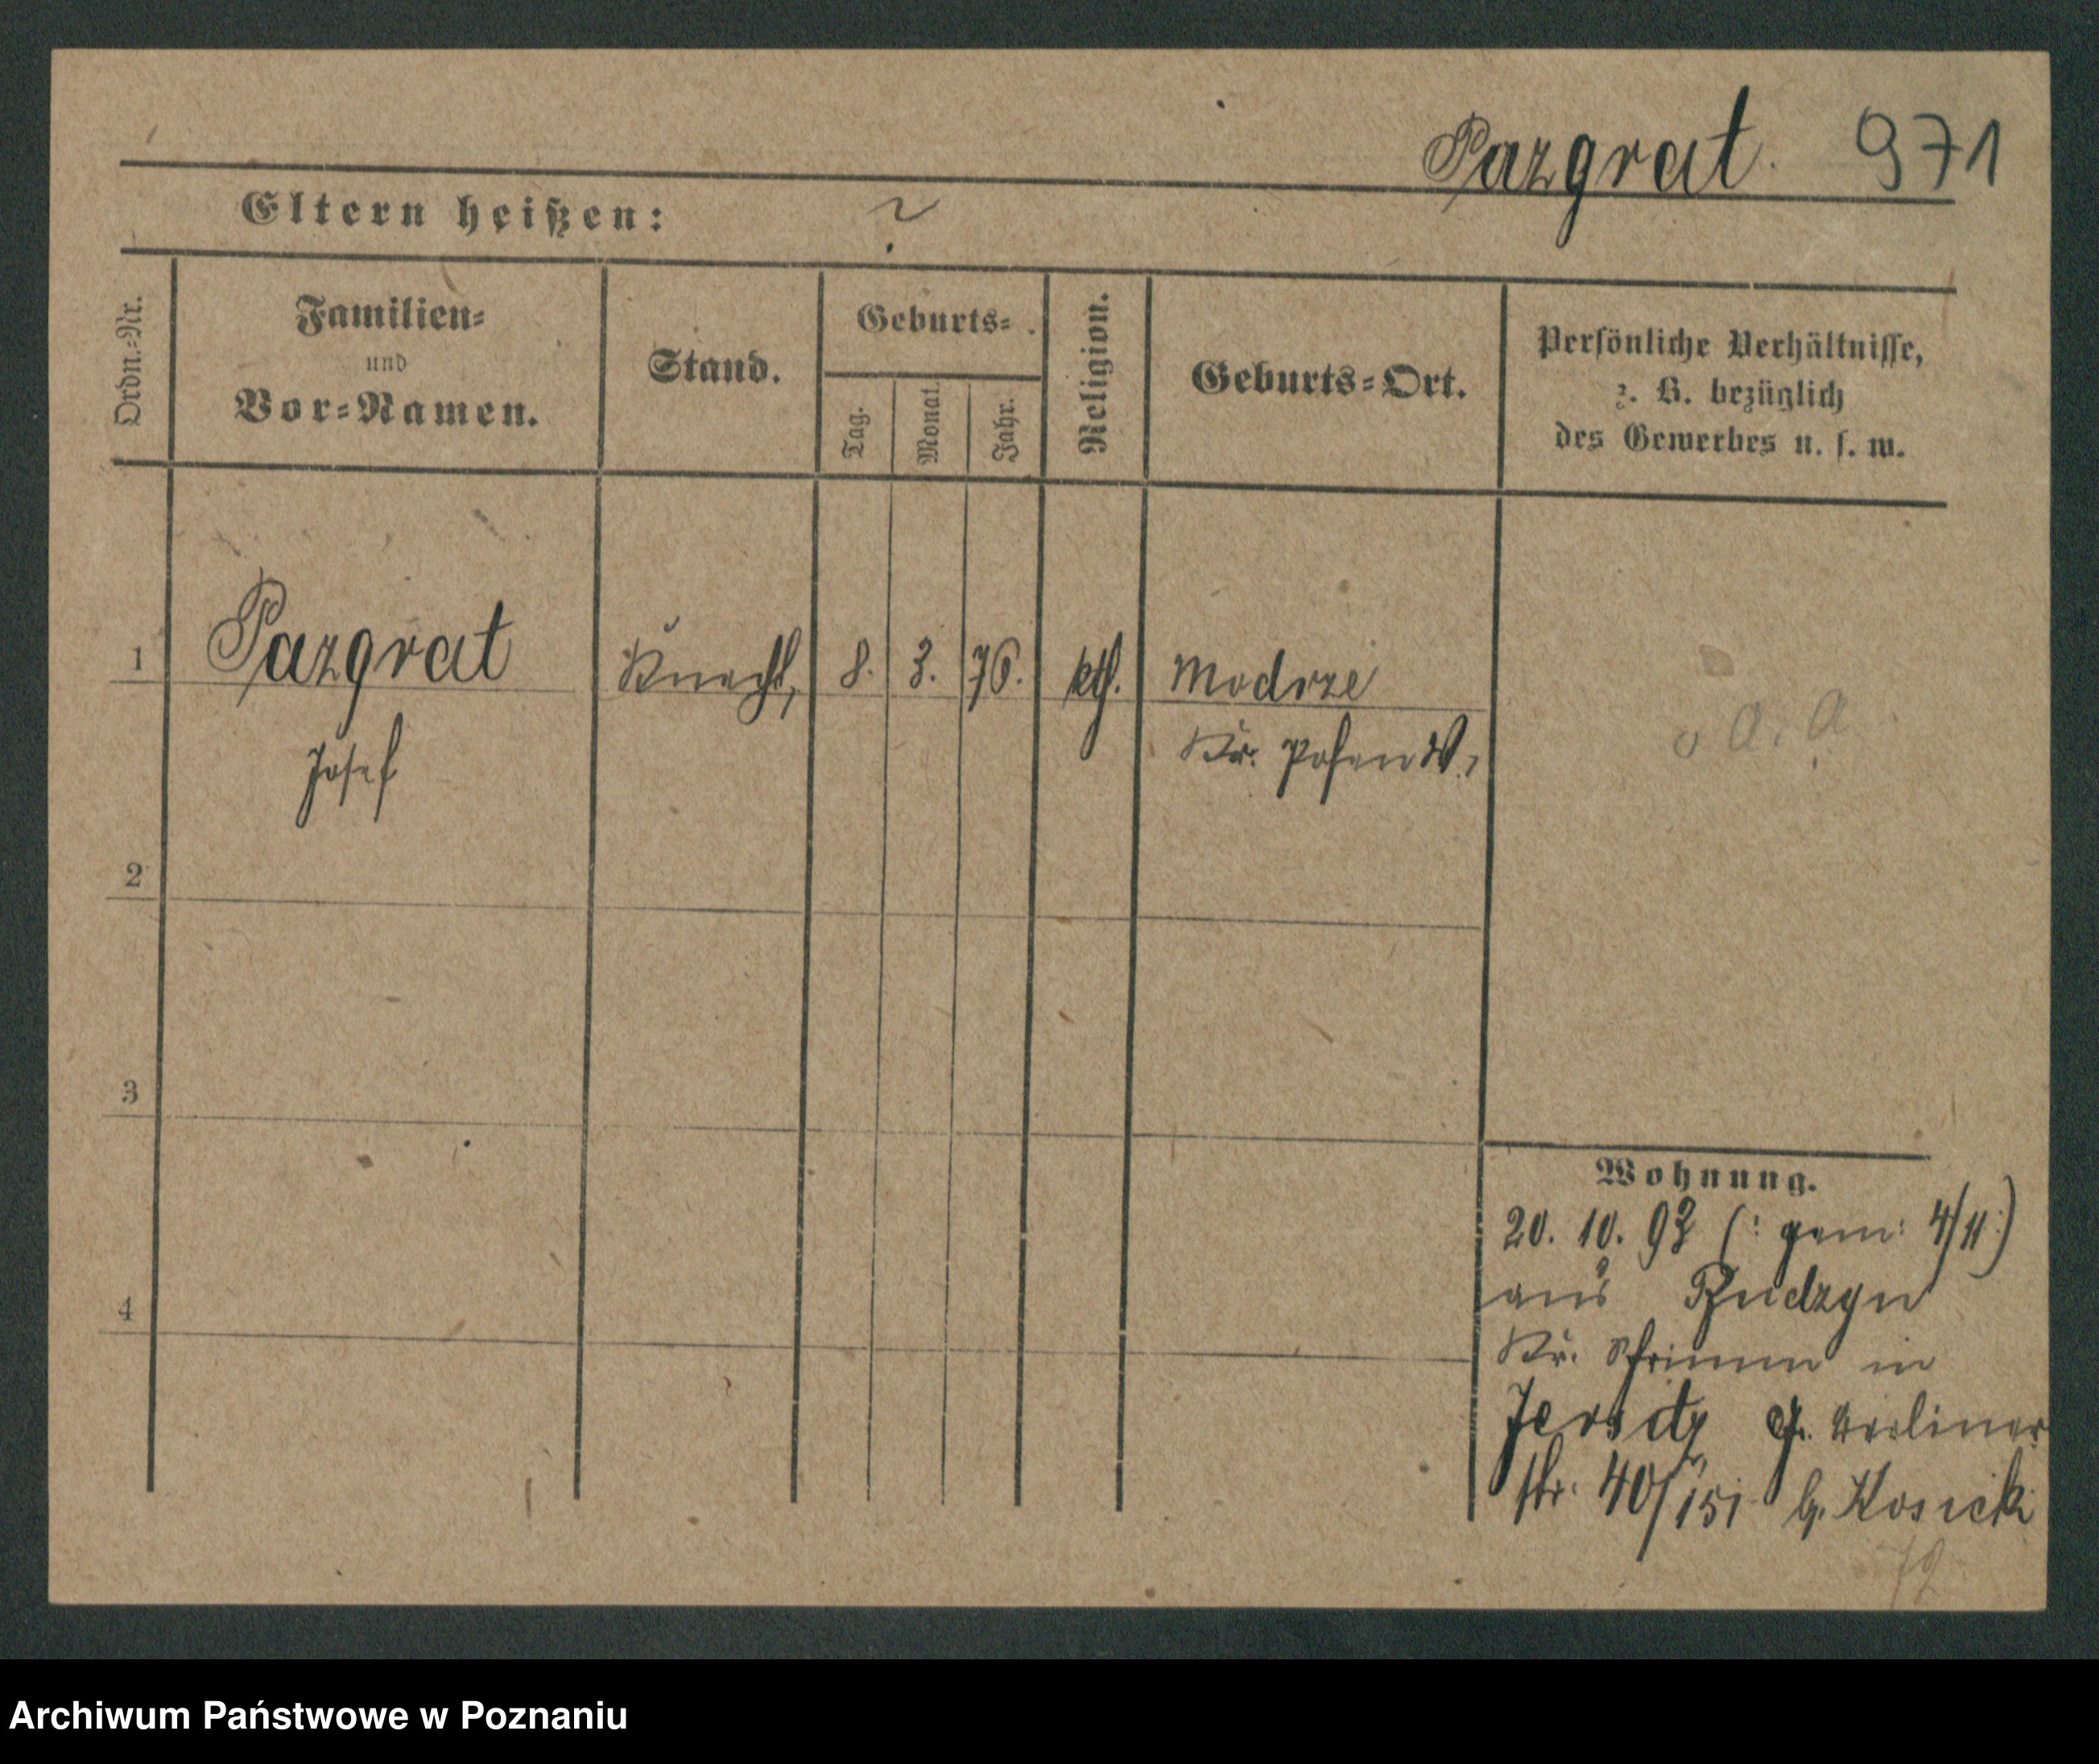 Pazgrat. 971
Eltern heißen: ?
Ordn.-Nr.
Familien-
und
Vor-Namen.
Stand.
Geburts-
Tag.
Monat.
Jahr.
Religion.
Geburts-Ort.
Persönliche Verhältnisse,
z. B. bezüglich
des Gewerbes u. s. w.
1 Pazgrat Knecht, 8. 3. 76. kth. Modrze
Josef Kr. Posen W.,
a. a
2
3
4
Wohnung.
20. 10. 93 (: gem: 4/11:)
aus
Kr. Schrimm in
Jersitz Gr. Berliner
str. 40/151 b. Kosicki
Archiwum Państwowe w Poznaniu